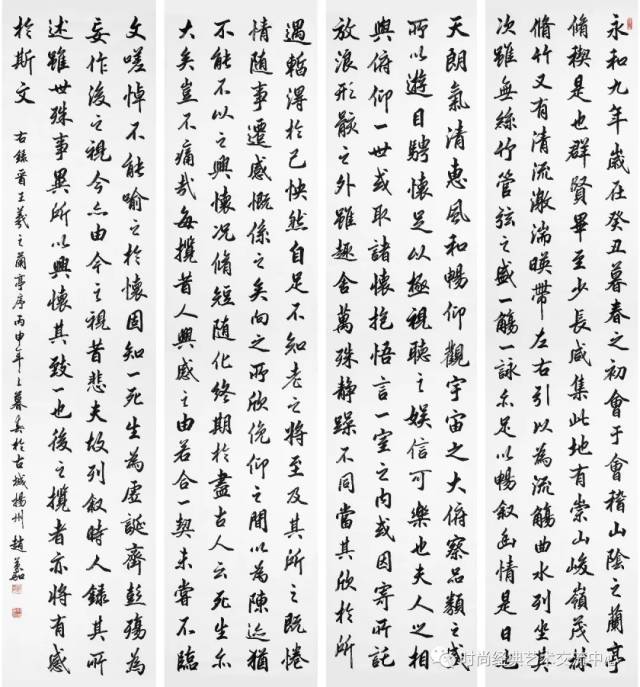 永和九年歲在癸丑暮春之初會于會稽山陰之蘭亭
脩稧是也群賢畢至少長咸集此地有崇山峻嶺茂林
脩竹又有清流激湍暎帶左右引以為流觴曲水列坐其
次雖無絲竹管弦之盛一觴一詠亦足以暢叙幽情是日也
天朗氣清惠風和暢仰觀宇宙之大俯察品類之盛
所以遊目騁懷足以極視聽之娛信可樂也夫人之相
與俯仰一世或取諸懷抱悟言一室之內或因寄所託
放浪形骸之外雖趣舍萬殊静躁不同當其欣於所
遇暫得於己怏然自足不知老之將至及其所之既惓
情隨事遷感慨係之矣向之所欣俛仰之間以為陳迹猶
不能不以之興懷況脩短隨化終期於盡古人云死生亦
大矣豈不痛哉每攬昔人興感之由若合一契未嘗不臨
文嗟悼不能喻之於懷固知一死生為虛誕齊彭殤為
妄作後之視今亦由今之視昔悲夫故列叙時人錄其所
述雖世殊事異所以興懷其致一也後之攬者亦將有感
於斯文
右錄晉王羲之蘭亭序丙申年之暮冬於古城揚州 趙
时尚经典艺术交流中心